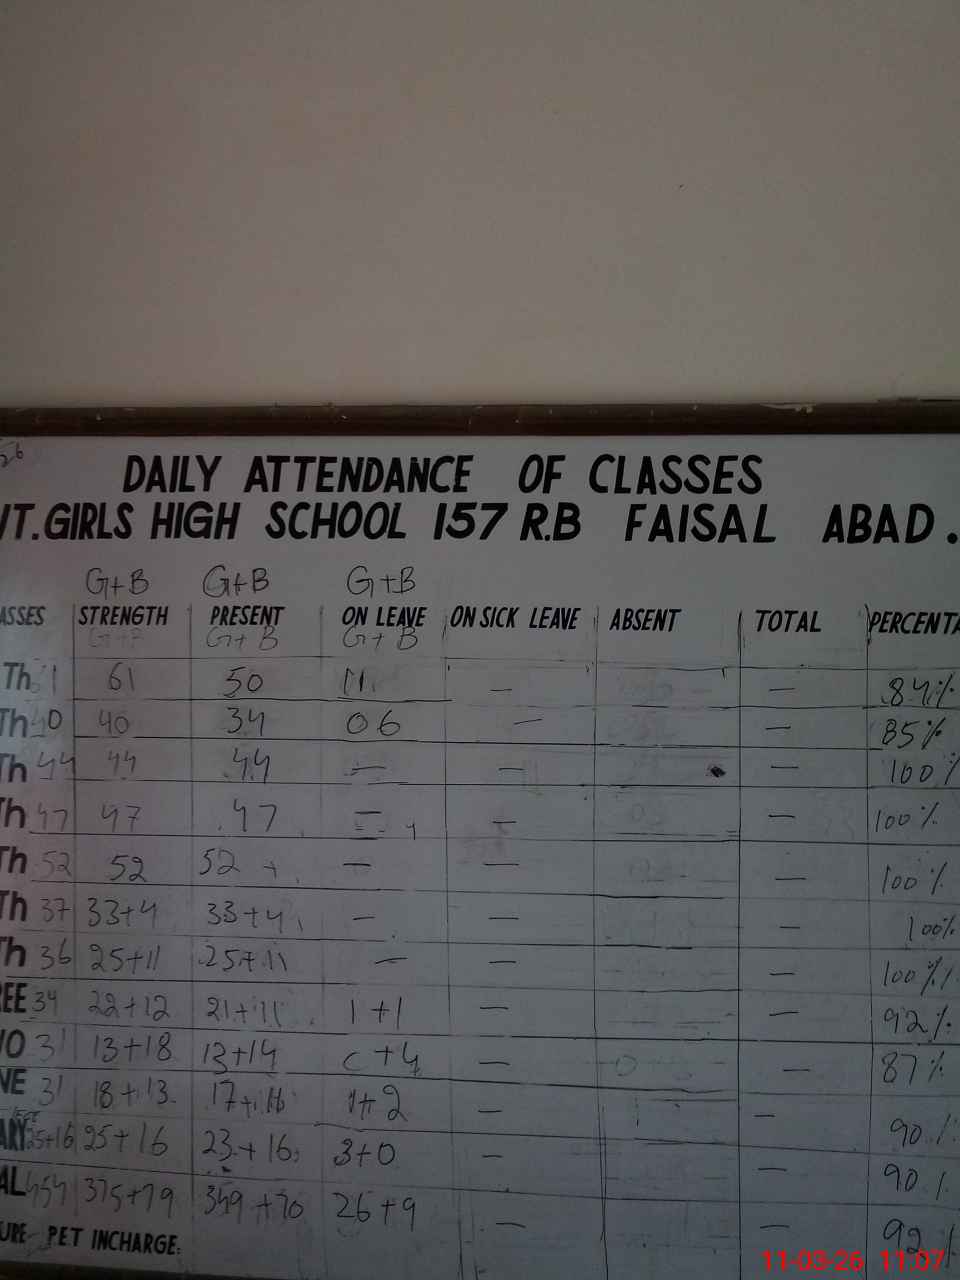 26
DAILY ATTENDANCE OF CLASSES
VT. GIRLS HIGH SCHOOL 157 R.B FAISAL ABAD.
G+B G+B G+B
ASSES STRENGTH PRESENT ON LEAVE ON SICK LEAVE ABSENT TOTAL PERCENTA
G+B G+B G+B
Th 61 50 11 — — 84%
Th 40 40 34 06 — — 85%
Th 44 44 44 — — — 100%
Th 47 47 47 — — — 100%
Th 52 52 52 — — — 100%
Th 37 33+4 33+4 — — — 100%
Th 36 25+11 25+11 — — — 100%
REE 34 22+12 21+11 1+1 — — 92%
WO 31 13+18 13+14 +4 — — 87%
NE 31 18+13 17+11 1+2 — — 90%
ARY 25+16 25+16 23+16 3+0 — — 90%
AL 454 375+79 349+70 26+9 — — 92%
URE PET INCHARGE:
11-03-26 11:07